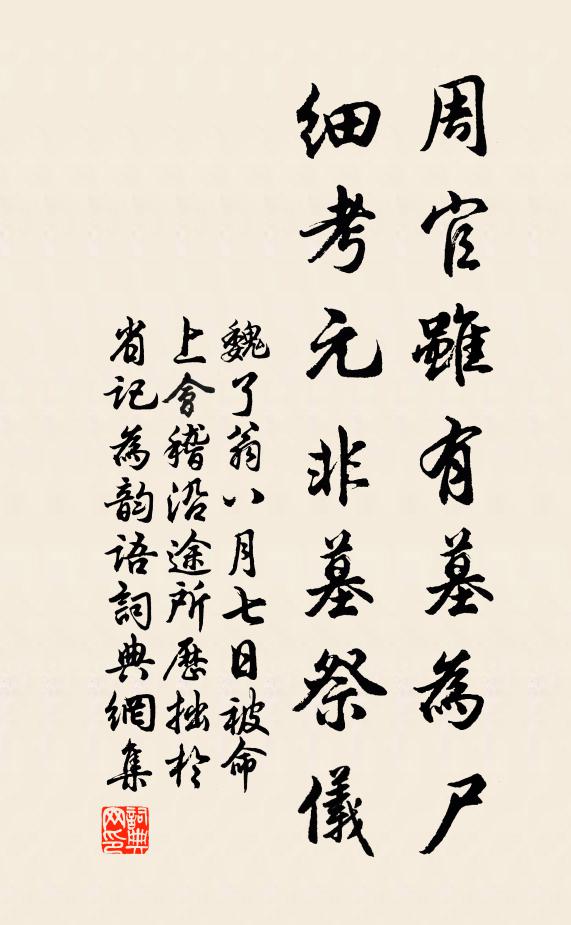 周官雖有墓為尸
細考元非墓祭儀
魏了翁八月七日被命
上會稽沿途所歷拙於
省記為韵語詞典網集
詞典
网印